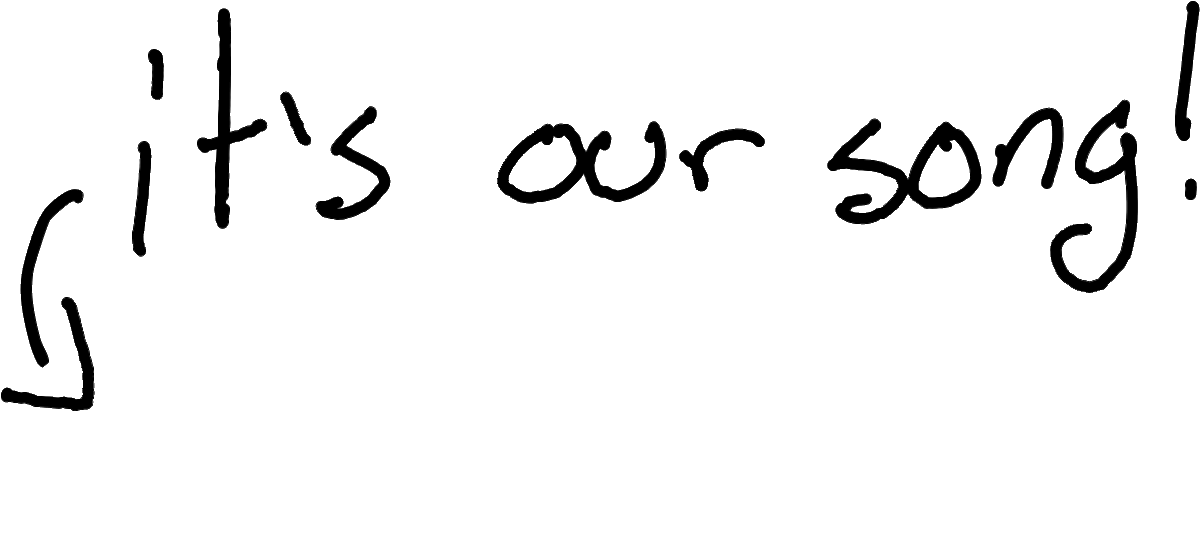 it's our song!